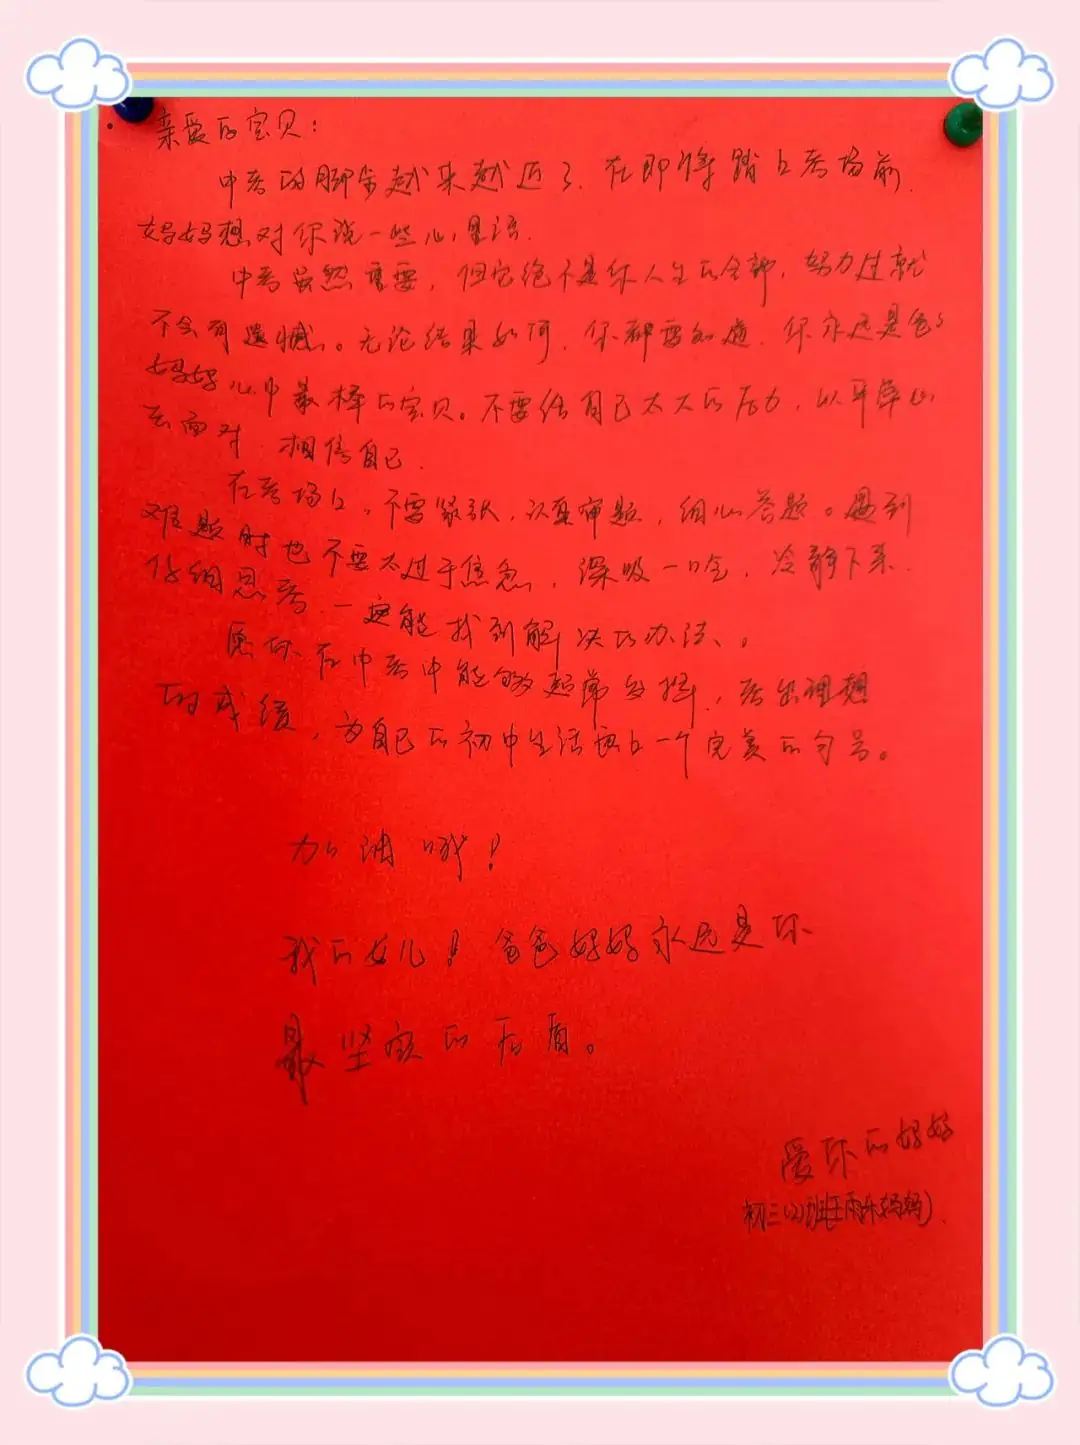 亲爱的宝贝：
中考的脚步越来越近了，在即将踏上考场前，
妈妈想对你说一些心里话。
中考虽然重要，但它绝不是你人生的全部，努力过就
不会有遗憾。无论结果如何，你都要知道，你永远是爸爸
妈妈心中最棒的宝贝。不要给自己太大的压力，以平常心
去面对，相信自己。
在考场上，不要紧张，认真审题，细心答题。遇到
难题时也不要太过于焦急，深吸一口气，冷静下来，
仔细思考，一定能找到解决的办法。
愿你在中考中能够超常发挥，考出理想
的成绩，为自己的初中生活画上一个完美的句号。
加油哦！
我的女儿！爸爸妈妈永远是你
最坚实的后盾。
爱你的妈妈
初三(2)班 雨东妈妈)